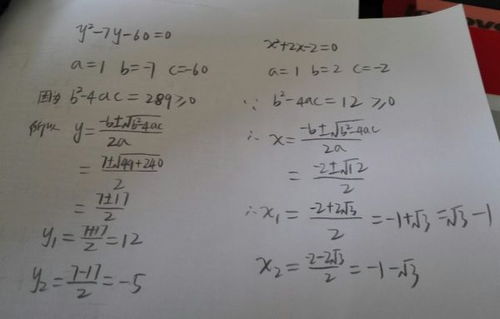 y²-7y-60=0
a=1 b=-7 c=-60
因为 b²-4ac=289≥0
所以 y=\frac{-b±\sqrt{b²-4ac}}{2a}
=\frac{7±\sqrt{49+240}}{2}
=\frac{7±17}{2}
y₁=\frac{7+17}{2}=12
y₂=\frac{7-17}{2}=-5
x²+2x-2=0
a=1 b=2 c=-2
∵ b²-4ac=12≥0
∴ x=\frac{-b±\sqrt{b²-4ac}}{2a}
=\frac{-2±\sqrt{12}}{2}
∴x₁=\frac{-2+2\sqrt{3}}{2}=-1+√3=√3-1
x₂=\frac{-2-2\sqrt{3}}{2}=-1-√3